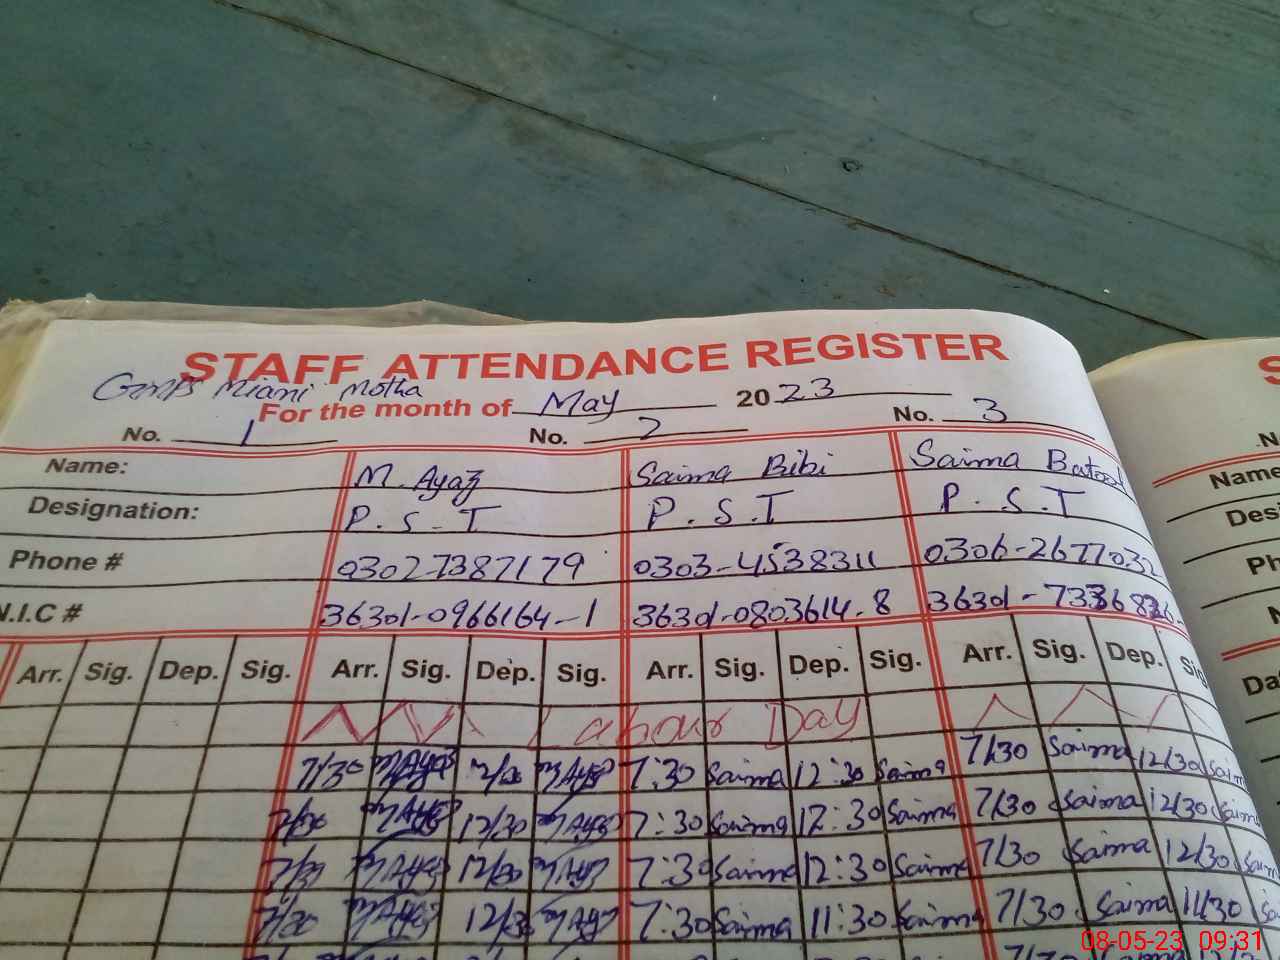 STAFF ATTENDANCE REGISTER
Miani Motha
For the month of May 2023
No. 1 No. 2 No. 3
Name: M. Ayaz Saima Bibi Saima Batool
Designation: P.S.T P.S.T P.S.T
Phone # 03027387179 0303-4538311 0306-2677032
N.I.C # 36301-0966164-1 36301-0803614-8 36301-
Arr. Sig. Dep. Sig. Arr. Sig. Dep. Sig. Arr. Sig. Dep. Sig. Arr. Sig. Dep. Sig
Labour Day
7/30 M Ayaz 7:30 Saima 12:30 Saima 7/30 Saima 12/30 Saim
7/30 M Ayaz 12/30 M Ayaz 7:30 Saima 12:30 Saima 7/30 Saima 12/30 Saim
7/30 M Ayaz 12/30 M Ayaz 7:30 Saima 12:30 Saima 7/30 Saima 12/30
7/30 M Ayaz 12/3 M Ayaz 7:30 Saima 11:30 Saima 7/30 Saima 11/30
S
Name
Desi
Ph
N
Dat
08-05-23 09:31